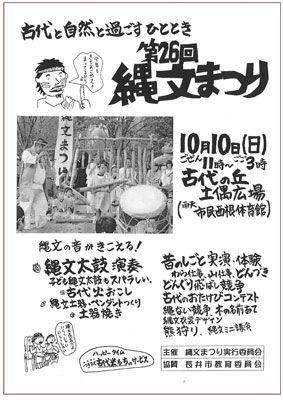 古代と自然と過ごすひととき
第26回
縄文まつり
縄文まつり
10月10日(日)
ごぜん11時〜ごご3時
古代の丘
土偶広場
(雨天 市民西根体育館)
縄文の音がきこえる!
縄文太鼓演奏
子ども縄文太鼓もスバラしい。
古代火おこし
縄文土鈴・ペンダントづくり
土器焼き
昔のしごと実演・体験
わら仕事、山仕事、どんづき
どんぐり飛ばし競争
古代のおたけびコンテスト
縄ない競争 木の名前あて
縄文衣装デザイン
熊狩り、縄文ミニ講演
ハッピータイム
古代米もちのサービス
主催 縄文まつり実行委員会
協賛 長井市教育委員会